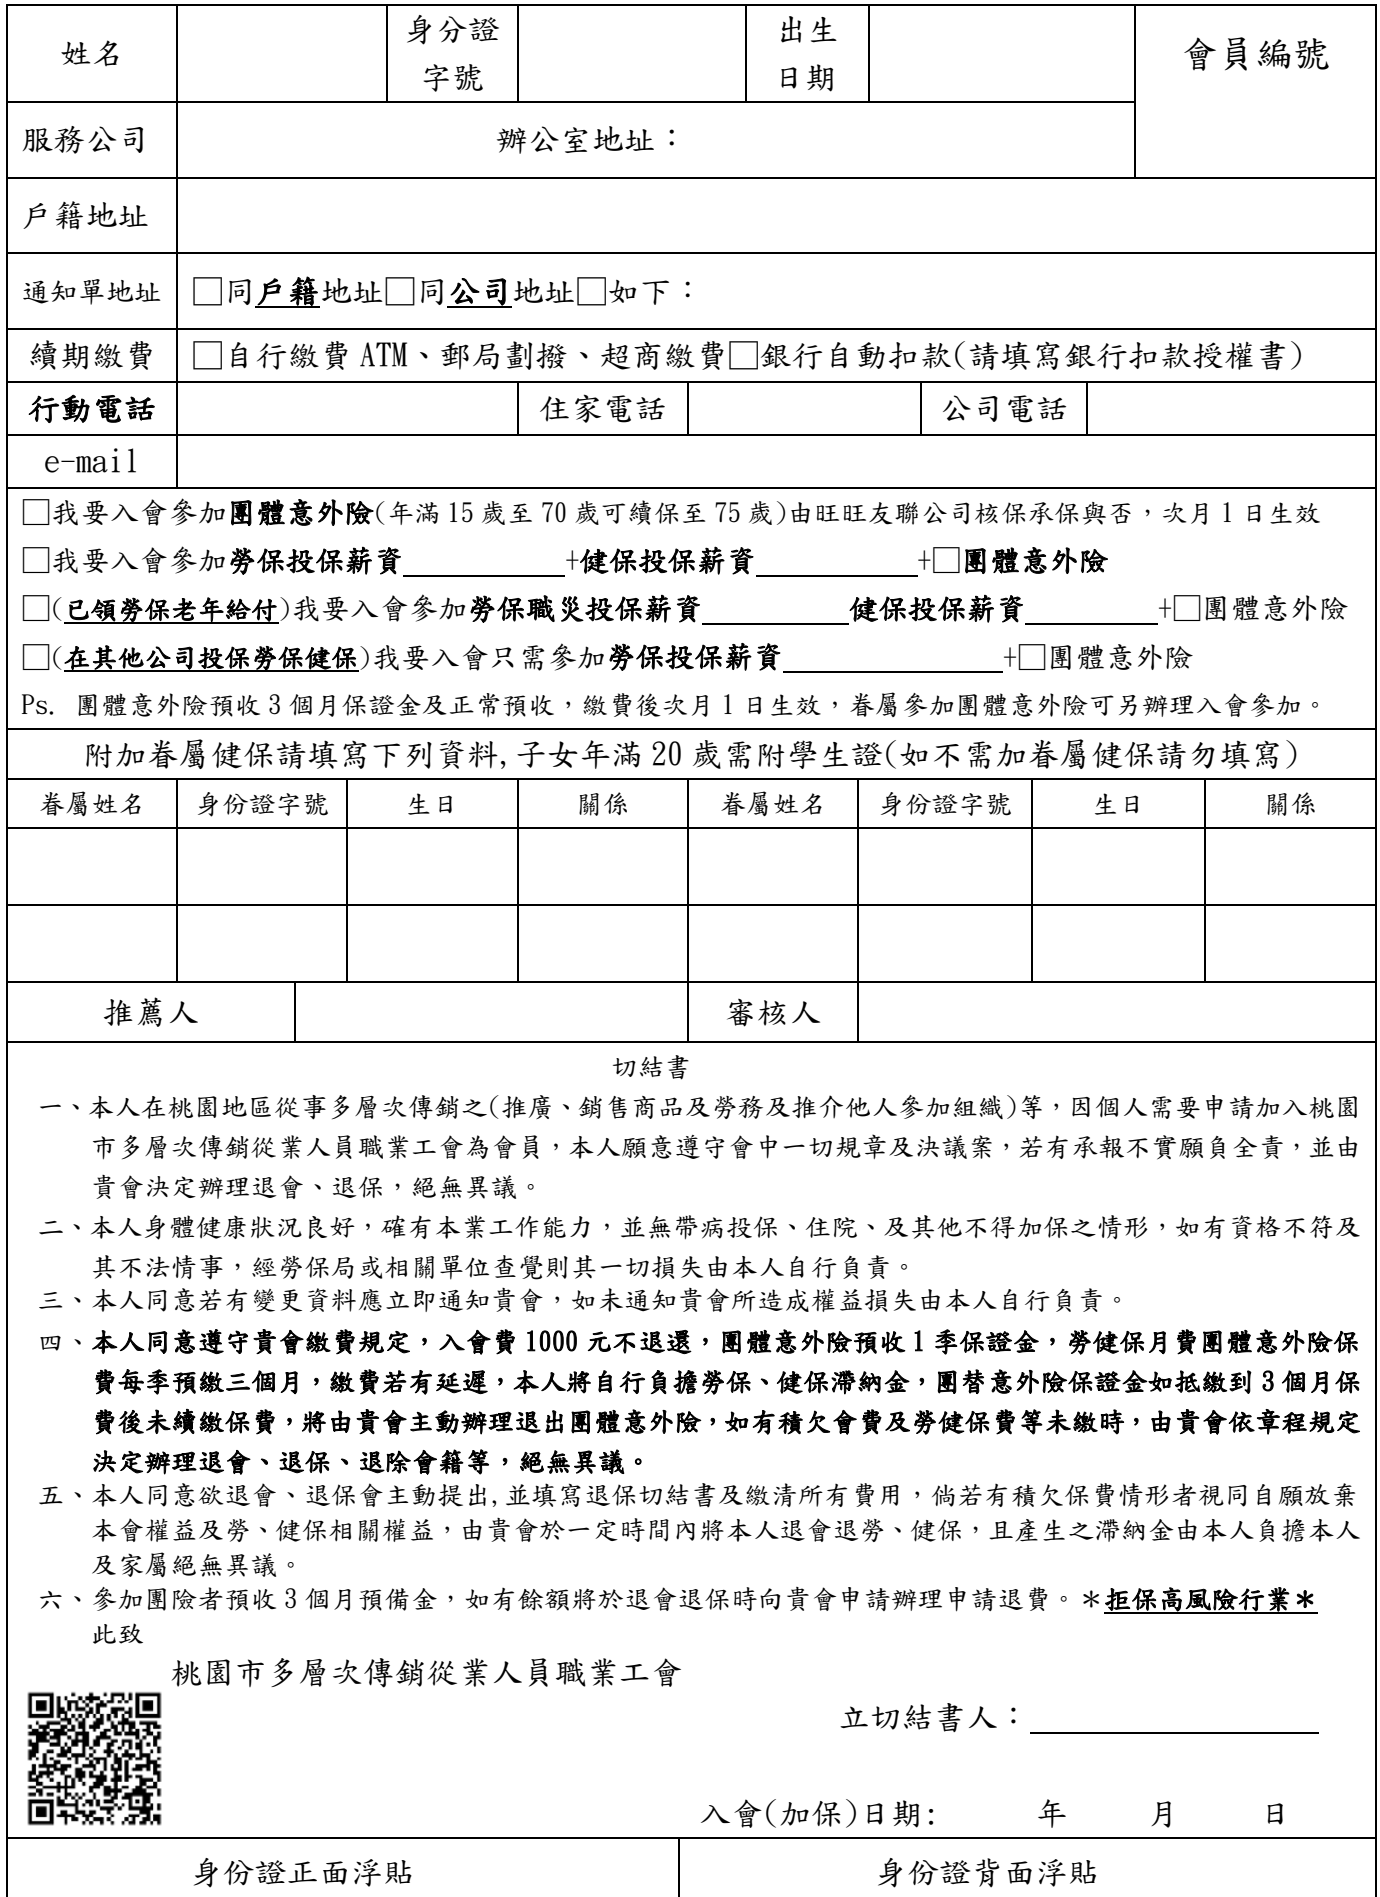 姓名 身分證字號 出生日期 會員編號
服務公司 辦公室地址：
戶籍地址
通知單地址 □同戶籍地址□同公司地址□如下：
續期繳費 □自行繳費 ATM、郵局劃撥、超商繳費□銀行自動扣款(請填寫銀行扣款授權書)
行動電話 住家電話 公司電話
e-mail
□我要入會參加團體意外險(年滿 15 歲至 70 歲可續保至 75 歲)由旺旺友聯公司核保承保與否，次月 1 日生效
□我要入會參加勞保投保薪資__________+健保投保薪資__________+□團體意外險
□(已領勞保老年給付)我要入會參加勞保職災投保薪資_________健保投保薪資________+□團體意外險
□(在其他公司投保勞保健保)我要入會只需參加勞保投保薪資______________+□團體意外險
Ps. 團體意外險預收 3 個月保證金及正常預收，繳費後次月 1 日生效，眷屬參加團體意外險可另辦理入會參加。
附加眷屬健保請填寫下列資料,子女年滿 20 歲需附學生證(如不需加眷屬健保請勿填寫)
眷屬姓名 身份證字號 生日 關係 眷屬姓名 身份證字號 生日 關係
推薦人 審核人
切結書
一、本人在桃園地區從事多層次傳銷之(推廣、銷售商品及勞務及推介他人參加組織)等，因個人需要申請加入桃園
市多層次傳銷從業人員職業工會為會員，本人願意遵守會中一切規章及決議案，若有承報不實願負全責，並由
貴會決定辦理退會、退保，絕無異議。
二、本人身體健康狀況良好，確有本業工作能力，並無帶病投保、住院、及其他不得加保之情形，如有資格不符及
其不法情事，經勞保局或相關單位查覺則其一切損失由本人自行負責。
三、本人同意若有變更資料應立即通知貴會，如未通知貴會所造成權益損失由本人自行負責。
四、本人同意遵守貴會繳費規定，入會費 1000 元不退還，團體意外險預收 1 季保證金，勞健保月費團體意外險保
費每季預繳三個月，繳費若有延遲，本人將自行負擔勞保、健保滯納金，團替意外險保證金如抵繳到 3 個月保
費後未續繳保費，將由貴會主動辦理退出團體意外險，如有積欠會費及勞健保費等未繳時，由貴會依章程規定
決定辦理退會、退保、退除會籍等，絕無異議。
五、本人同意欲退會、退保會主動提出,並填寫退保切結書及繳清所有費用，倘若有積欠保費情形者視同自願放棄
本會權益及勞、健保相關權益，由貴會於一定時間內將本人退會退勞、健保，且產生之滯納金由本人負擔本人
及家屬絕無異議。
六、參加團險者預收 3 個月預備金，如有餘額將於退會退保時向貴會申請辦理申請退費。＊拒保高風險行業＊
此致
桃園市多層次傳銷從業人員職業工會
立切結書人：__________________
入會(加保)日期: 年 月 日
身份證正面浮貼 身份證背面浮貼